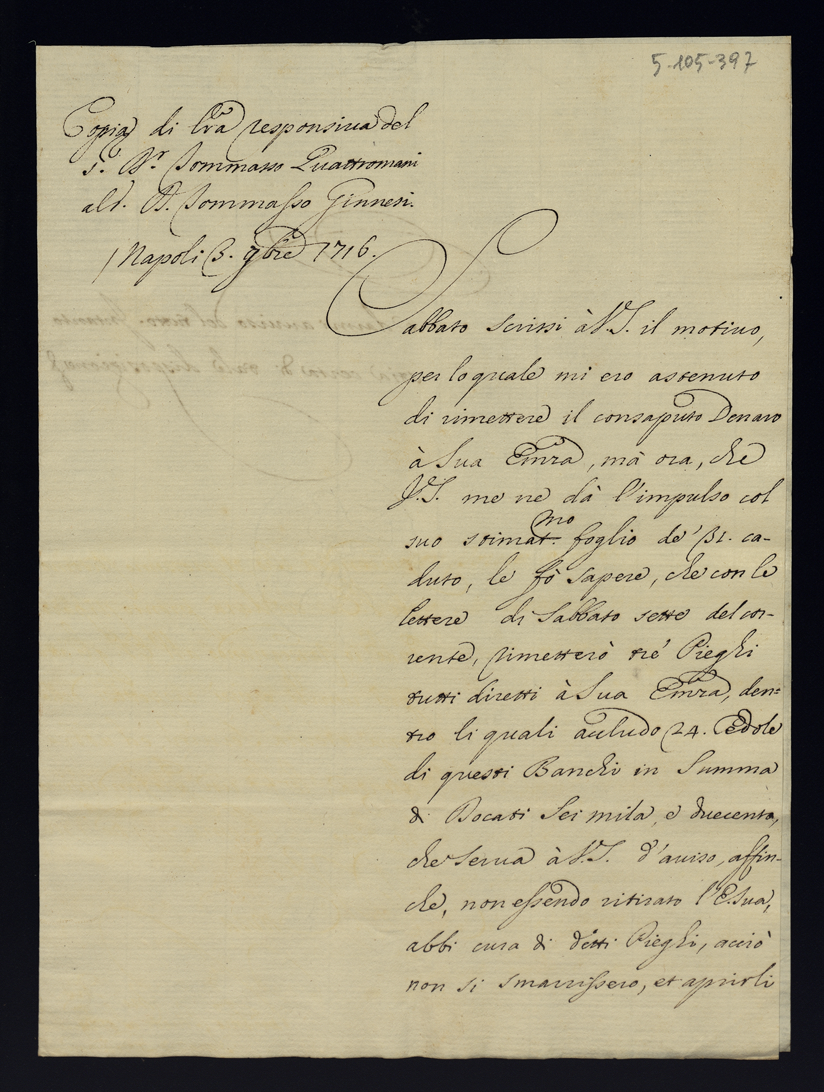 5-105-397
Copia di Lra responsiva del
S.r D.r Tommasso Quattromani
al S.r D. Tommasso Ginnesi.
Napoli 3. 9bre 1716.
Sabbato scrissi à V.S. il motivo,
per lo quale mi ero astenuto
di rimettere il consaputo Denaro
à Sua Emza, mà ora, che
V.S. me ne dà l'impulso col
suo stimat.mo foglio de' 31. ca-
duto, le fò sapere, che con le
lettere di Sabbato sette del cor-
rente, rimetterò trè Pieghi
tutti diretti à Sua Emza, den=
tro li quali acludo 24. Cedole
di questi Banchi in Summa
di Docati Sei mila, e duecento,
che serva à V.S. d'aviso, affin-
che, non essendo ritirato l'E. Sua,
abbi cura di detti Pieghi, acciò
non si smarrissero, et aprirli